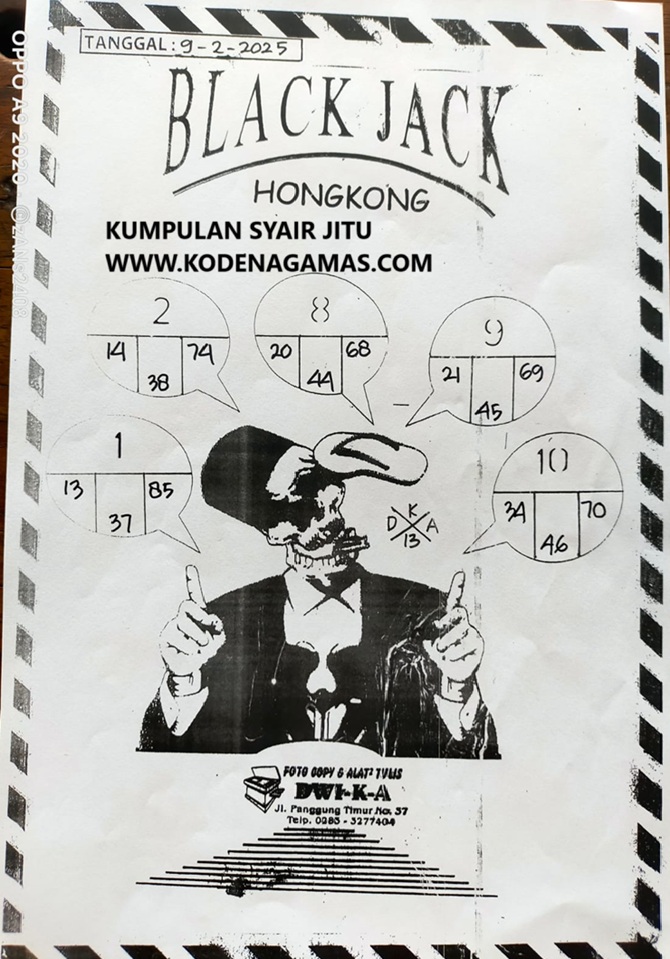 TANGGAL: 9-2-2025
BLACK JACK
HONGKONG
KUMPULAN SYAIR JITU
WWW.KODENAGAMAS.COM
2
14 38 74
8
20 44 68
9
21 45 69
1
13 37 85
10
34 46 70
K
D A
13
FOTO COPY & ALAT² TULIS
DWI-K-A
Jl. Panggung Timur No. 37
Telp. 0283 - 3277404
OPPO A9 2020